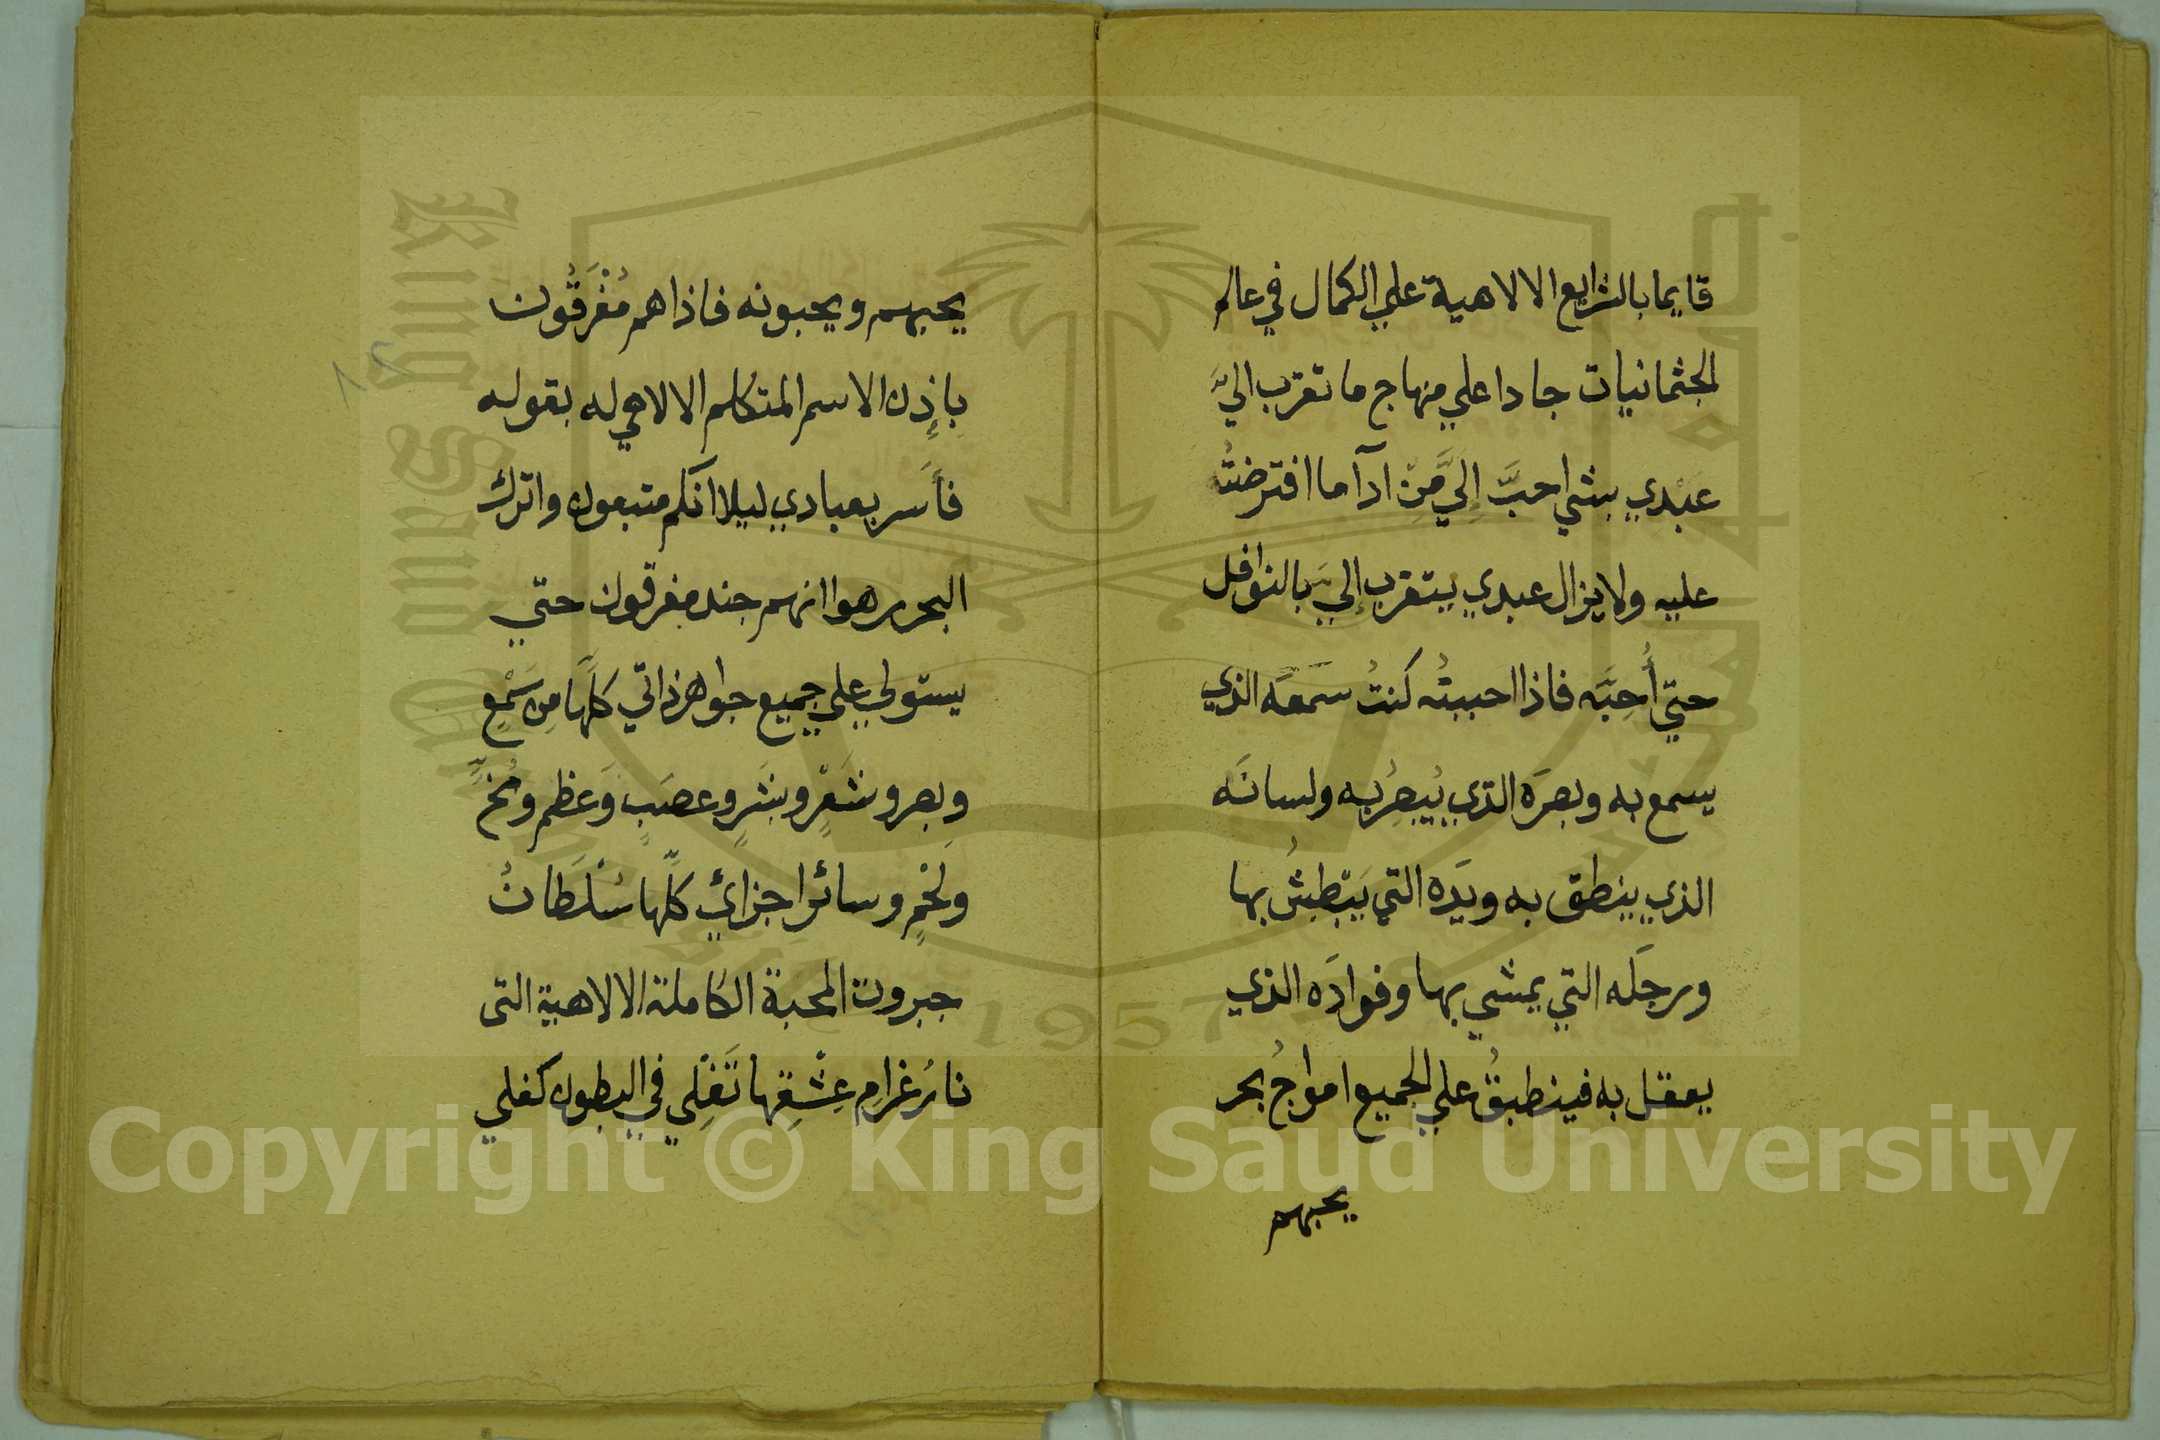 قايما بالشرايع الالاهية علي الكمال في عالم
الجثمانيات جادا علي منهاج ما تقرب اليَّ
عبْدِي بشي احبَّ إِليَّ مِنْ ادآ ما افترضتُ
عليه ولا يزال عبدي يتقرب إليَّ بالنوافل
حتي أُحِبَّه فاذا احببتُه كنتُ سمعَه الذي
يسمع به وبصرَه الذي يُبصِرُ به ولسانَه
الذي ينطق به ويدَه التي يَبْطِشُ بها
ورجلَه التي يمشي بها وفوادَه الذي
يعقل به فينطبقُ علي الجميع امواجُ بحر
يحبهم
يحبهم ويحبونه فاذا هم مُغْرَقُون
بإِذن الاسم المتكلم الالاهي له بقوله
فأَسر بعبادي ليلا انكم متبعون واترك
البحر رهوا انهم جند مغرقون حتي
يستولي علي جميع جواهر ذاتي كلّها مِن سَمْعٍ
وبصر وشَعْرٍ وبَشَرٍ وعصَبٍ وَعَظم ومُخٍّ
ولَحْمٍ وسائر اجزائي كلّها سُلْطَانُ
جبروت المحبة الكاملة الالاهية التى
نارُ غرامِ عِشْقِها تَغْلِي في البطون كغلي
Copyright © King Saud University
King Saud University
1957